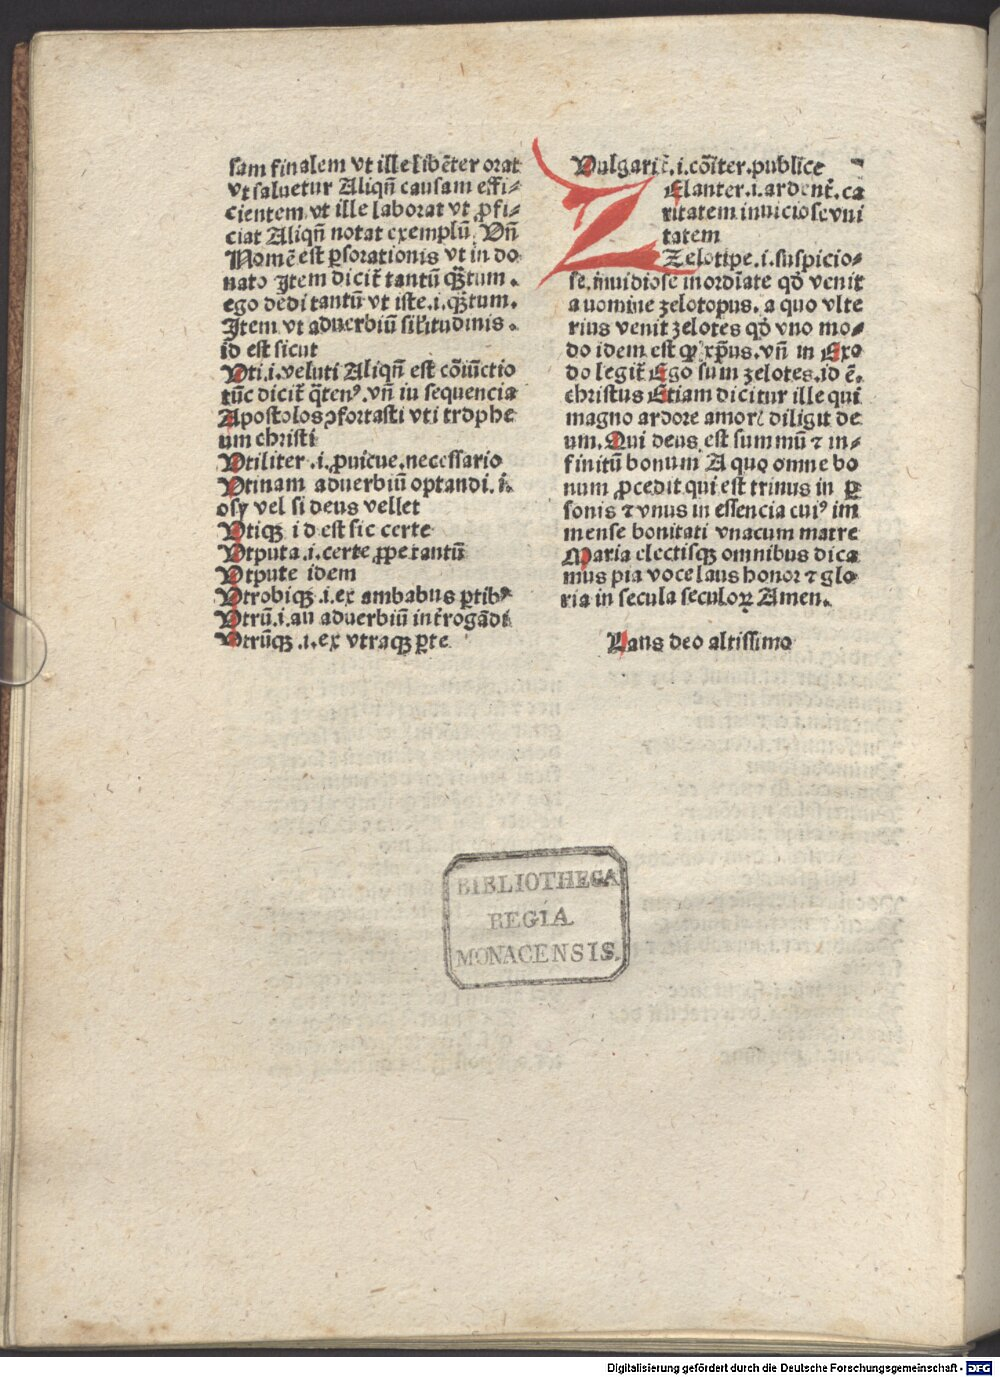 sam finalem vt ille libēter orat
vt saluetur Aliqñ causam effi⸗
cientem vt ille laborat vt ꝓfi⸗
ciat Aliqñ notat exemplū. Vñ
Nomē est ꝑsorationis vt in do
nato Item dicit̄ tantū qȝtum.
ego dedi tantū vt iste.i.qȝtum.
Item vt aduerbiū silitudinis.
id est sicut
Vti.i.veluti Aliqñ est cōiūctio
tūc dicit̄ q̄tenꝰ.vñ iu sequencia
Apostolos ꝯfortasti vti trophe
um christi
Vtiliter.i.ꝓuicue.necessario
Vtinam aduerbiū optandi.i.
osy vel si deus vellet
Vtiqꝫ id est sic certe
Vtputa.i.certe ꝓpe tantū
Vtpute idem
Vtrobiqꝫ.i.ex ambabus ꝑtibꝰ
Vtrū.i.an aduerbiū int̄rogādi
Vtrūqꝫ.i.ex vtraqꝫ ꝑte
Vulgarit̄.i.cōiter.publice
Zelanter.i.ardent̄.ca
ritatem inuiciose vni
tatem
Zelotipe.i.suspicio⸗
se.inuidiose inordīate qđ venit
a uomine zelotopus.a quo vlte
rius venit zelotes qđ vno mo⸗
do idem est qꝫ xp̄us.vñ in Exo
do legit̄ Ego sum zelotes.id ē.
christus Etiam dicitur ille qui
magno ardore amorꝭ diligit de
um.Qui deus est summū ⁊ in⸗
finitū bonum A quo omne bo
num ꝓcedit qui est trinus in ꝑ
sonis ⁊ vnus in essencia cuiꝰ im
mense bonitati vnacum matre
Maria electisqꝫ omnibus dica
mus pia voce laus honor ⁊ glo
ria in secula seculoꝝ Amen.
Laus deo altissimo
BIBLIOTHECA
REGIA
MONACENSIS.
Digitalisierung gefördert durch die Deutsche Forschungsgemeinschaft - DFG